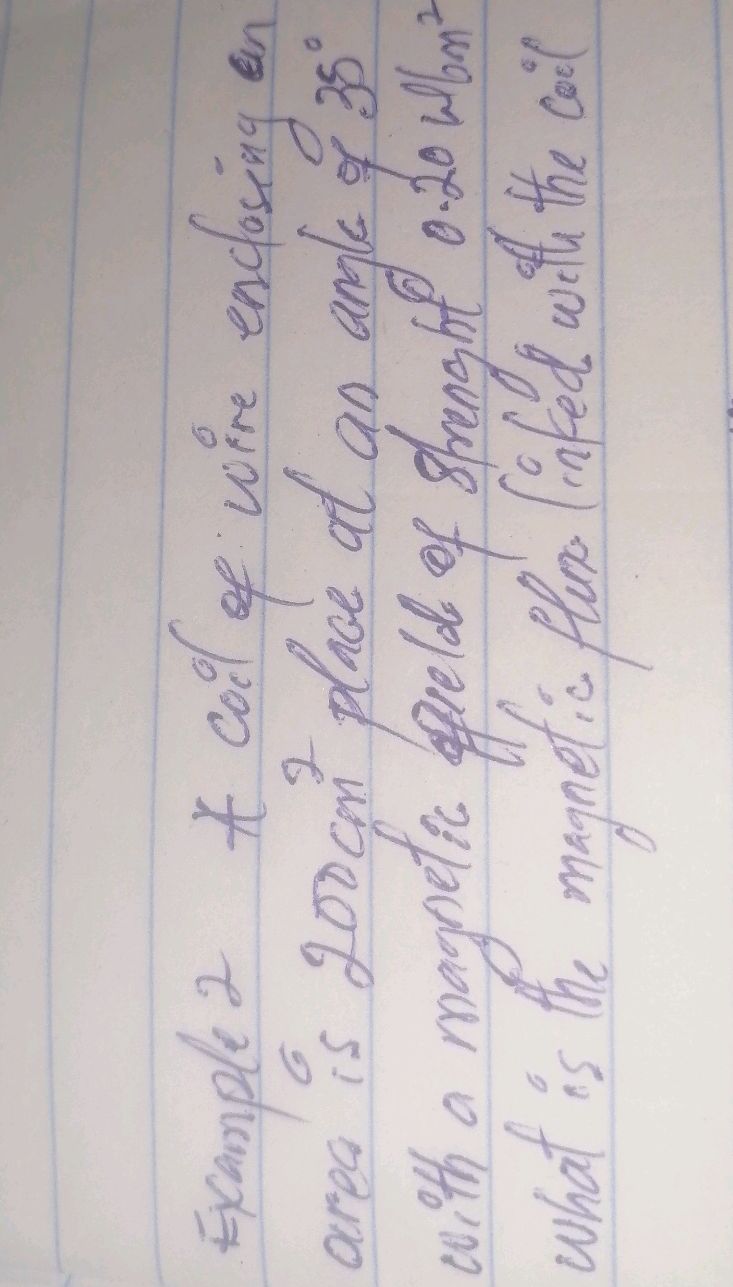 Example 2 A coil of wire enclosing an
area is 200cm² place at an angle of 35°
with a magnetic field of strenght 0.20 Wbm²
what is the magnetic flux linked with the coil